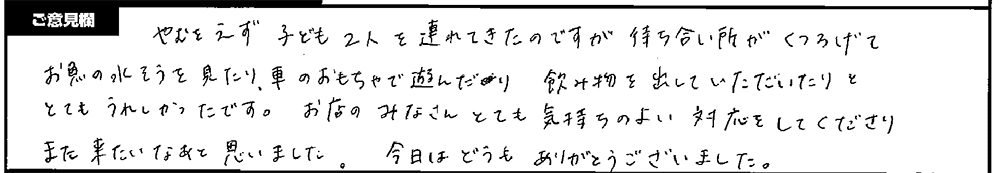 ご意見欄
やむをえず 子ども 2人 を 連れてきたのですが 待ち合い所が くつろげて
お魚の水そうを見たり、車のおもちゃで遊んだり 飲み物を出していただいたりと
とてもうれしかったです。 お店の みなさん とても 気持ちのよい 対応をしてくださり
また来たいなあと思いました。 今日はどうも ありがとうございました。